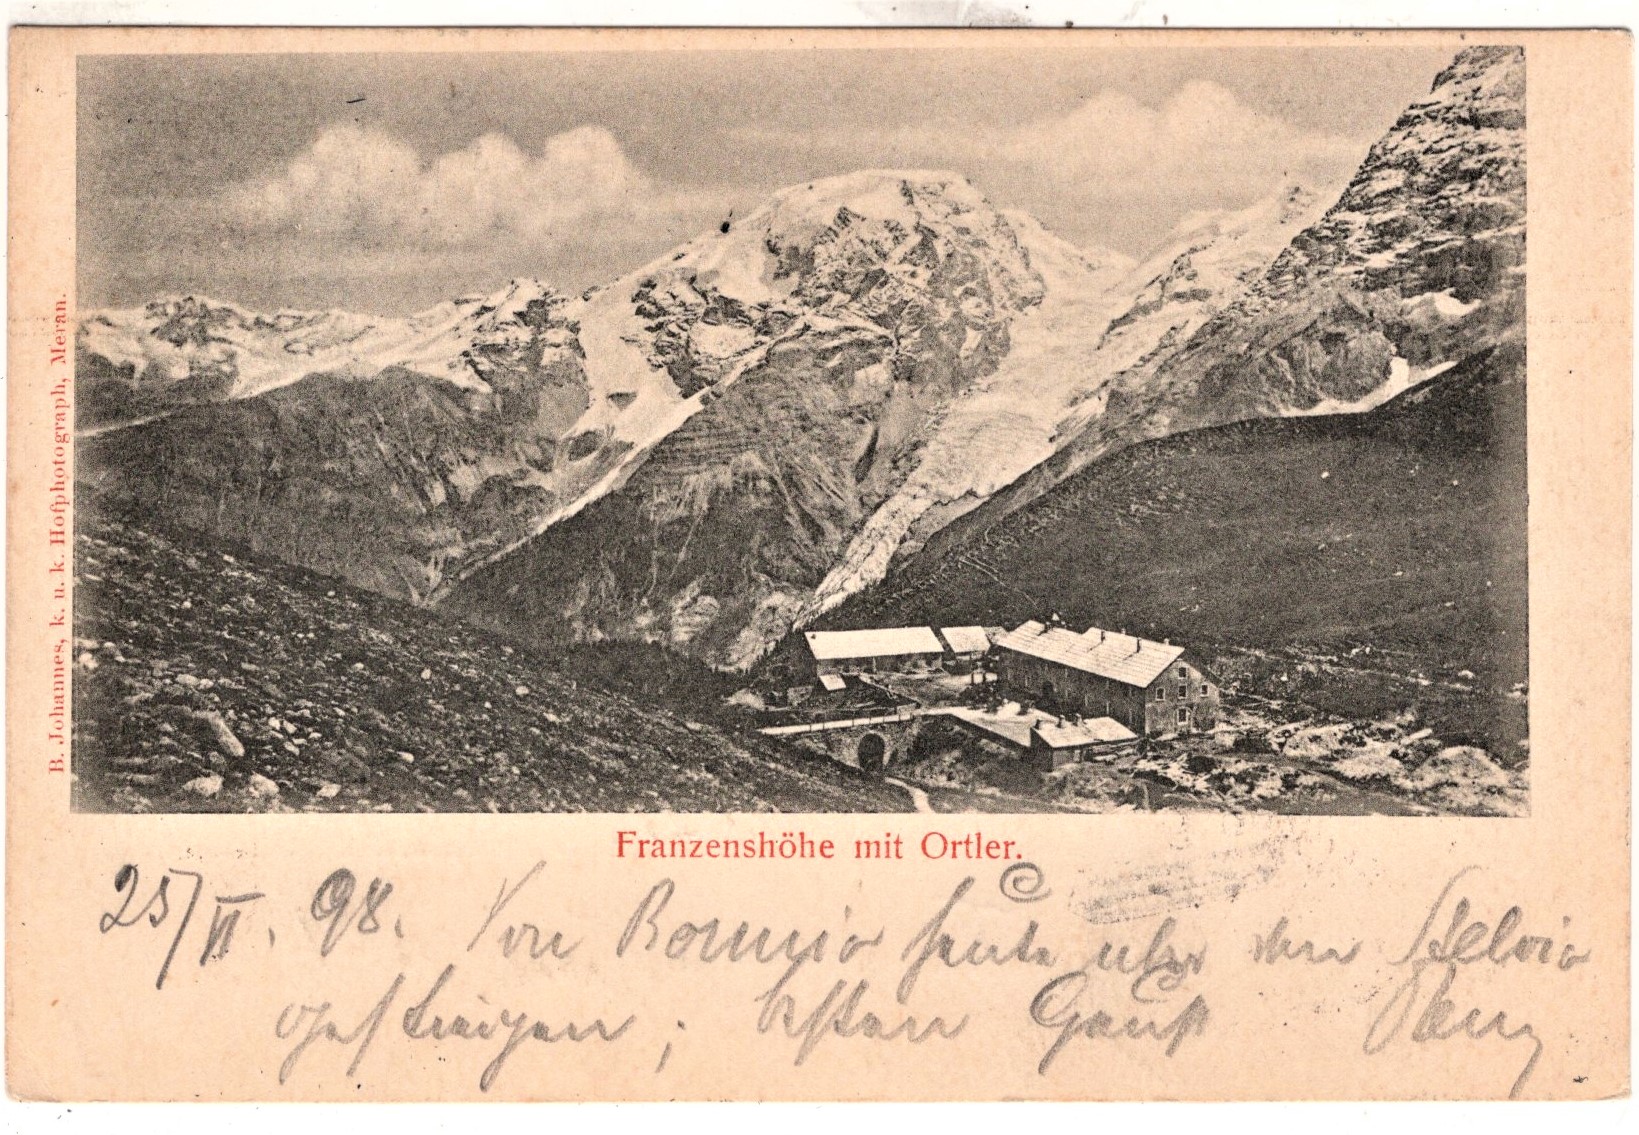 B. Johannes, k. u. k. Hofphotograph, Meran.
Franzenshöhe mit Ortler.
25/VI. 98. Von Bormio heute über den Stelvio
gestiegen; besten Gruß